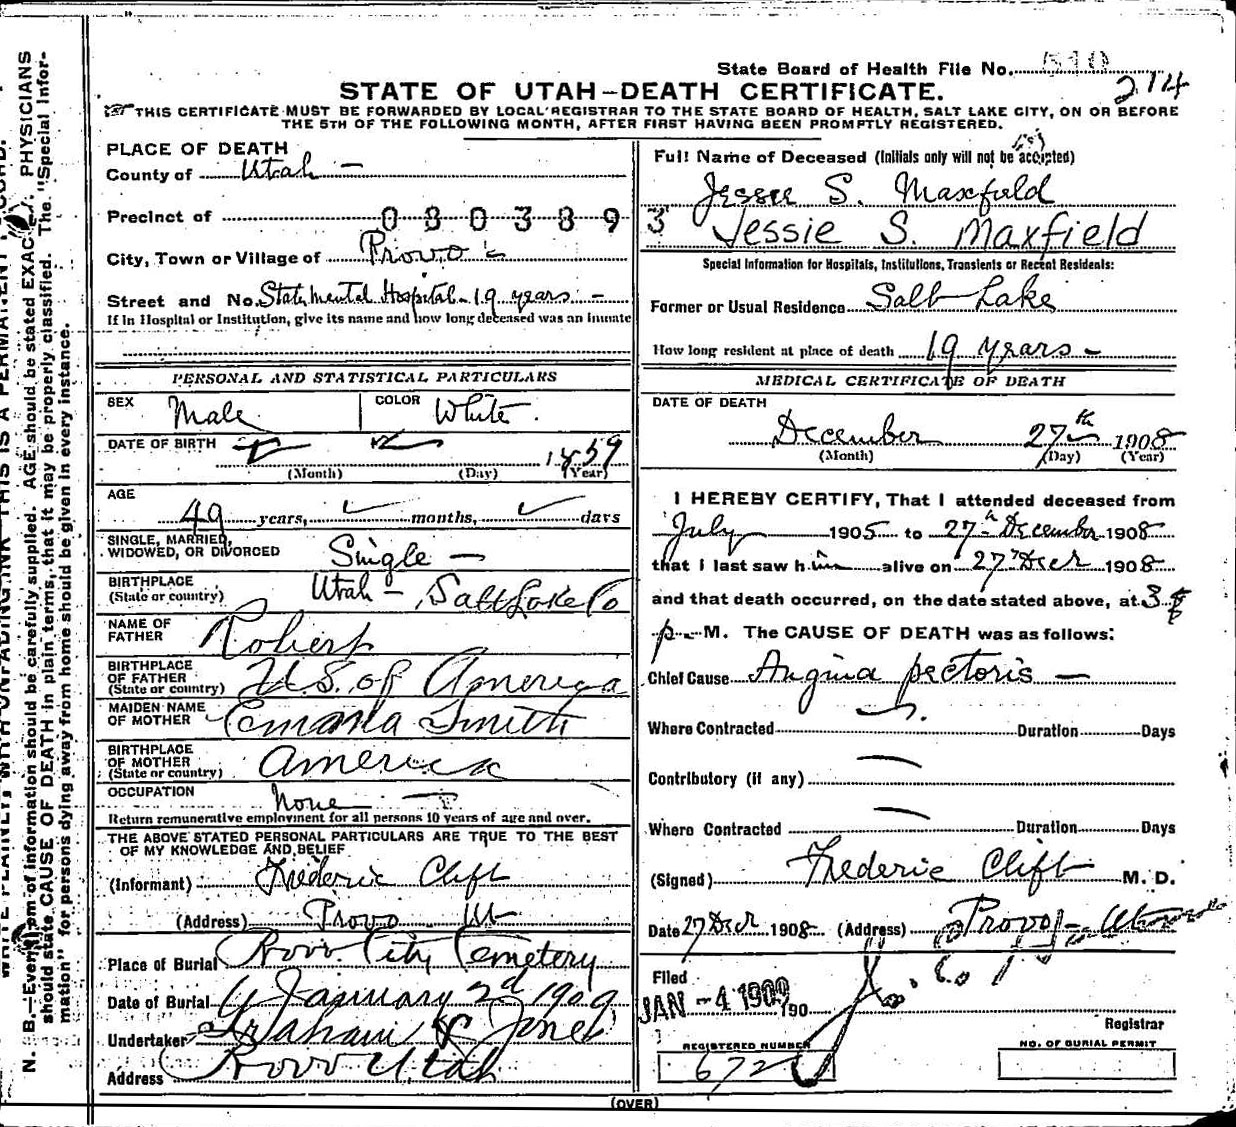 State Board of Health File No. 510
214
STATE OF UTAH–DEATH CERTIFICATE.
THIS CERTIFICATE MUST BE FORWARDED BY LOCAL REGISTRAR TO THE STATE BOARD OF HEALTH, SALT LAKE CITY, ON OR BEFORE
THE 5TH OF THE FOLLOWING MONTH, AFTER FIRST HAVING BEEN PROMPTLY REGISTERED.
PLACE OF DEATH
County of Utah –
Precinct of 080389 3
City, Town or Village of Provo
Street and No. State Mental Hospital – 19 years –
If in Hospital or Institution, give its name and how long deceased was an inmate
PERSONAL AND STATISTICAL PARTICULARS
SEX Male COLOR White.
DATE OF BIRTH 1859
(Month) (Day) (Year)
AGE
49 years, months, days
SINGLE, MARRIED,
WIDOWED, OR DIVORCED Single –
BIRTHPLACE
(State or country) Utah – Salt Lake Co
NAME OF
FATHER Robert
BIRTHPLACE
OF FATHER
(State or country) U.S. of America
MAIDEN NAME
OF MOTHER Smith
BIRTHPLACE
OF MOTHER
(State or country) America
OCCUPATION None –
Return remunerative employment for all persons 10 years of age and over.
THE ABOVE STATED PERSONAL PARTICULARS ARE TRUE TO THE BEST
OF MY KNOWLEDGE AND BELIEF
(Informant) Frederic Clift
(Address) Provo Ut
Place of Burial Provo City Cemetery
Date of Burial January 2d 1909
Undertaker Graham & Jones
Address Provo Utah
Full Name of Deceased (Initials only will not be accepted)
Jessie S. Maxfield
Jessie S. Maxfield
Special Information for Hospitals, Institutions, Transients or Recent Residents:
Former or Usual Residence Salt Lake
How long resident at place of death 19 years –
MEDICAL CERTIFICATE OF DEATH
DATE OF DEATH
December 27th 1908
(Month) (Day) (Year)
I HEREBY CERTIFY, That I attended deceased from
July 1905 to 27th December 1908
that I last saw him alive on 27 Decr 1908
and that death occurred, on the date stated above, at 3
p M. The CAUSE OF DEATH was as follows:
Chief Cause Angina pectoris –
Where Contracted Duration Days
Contributory (if any)
Where Contracted Duration Days
(Signed) Frederic Clift M. D.
Date 27 Decr 1908 (Address) Provo Utah
Filed
JAN -4 1909 190
Registrar
REGISTERED NUMBER
672
NO. OF BURIAL PERMIT
(OVER)
N. B.—Every item of information should be carefully supplied. AGE should be stated EXACTLY. PHYSICIANS
should state CAUSE OF DEATH in plain terms, that it may be properly classified. The "Special Infor-
mation" for persons dying away from home should be given in every instance.